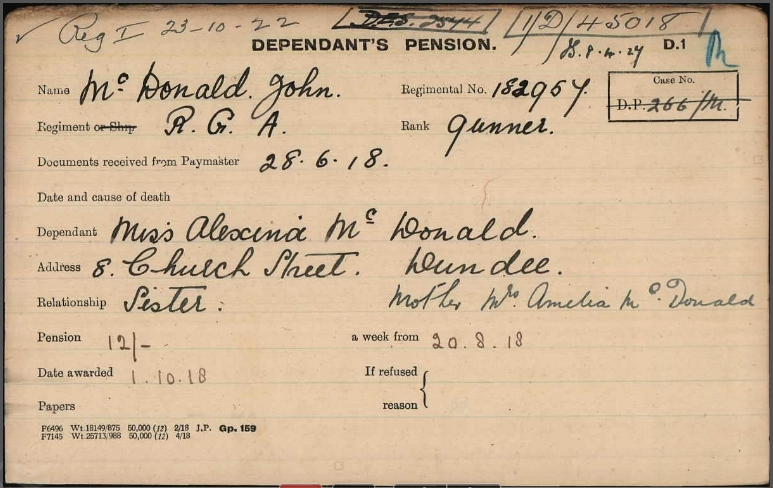 ✓ Reg I 23-10-22 D.F.S. 2544 1/D/45018
DEPENDANT'S PENSION. 8.4.27 D.1
Name McDonald. John. Regimental No. 182957. Case No.
Regiment or Ship R. G. A. Rank Gunner. D.P. 266/M.
Documents received from Paymaster 28.6.18.
Date and cause of death
Dependant Miss Alexina McDonald.
Address 8. Church Street. Dundee.
Relationship Sister: Mother Mrs Amelia McDonald
Pension 12/- a week from 20.8.18
Date awarded 1.10.18 If refused
Papers reason
F6496 Wt.18149/875 50,000 (12) 2/18 J.P. Gp. 159
F7145 Wt.25713/988 50,000 (12) 4/18